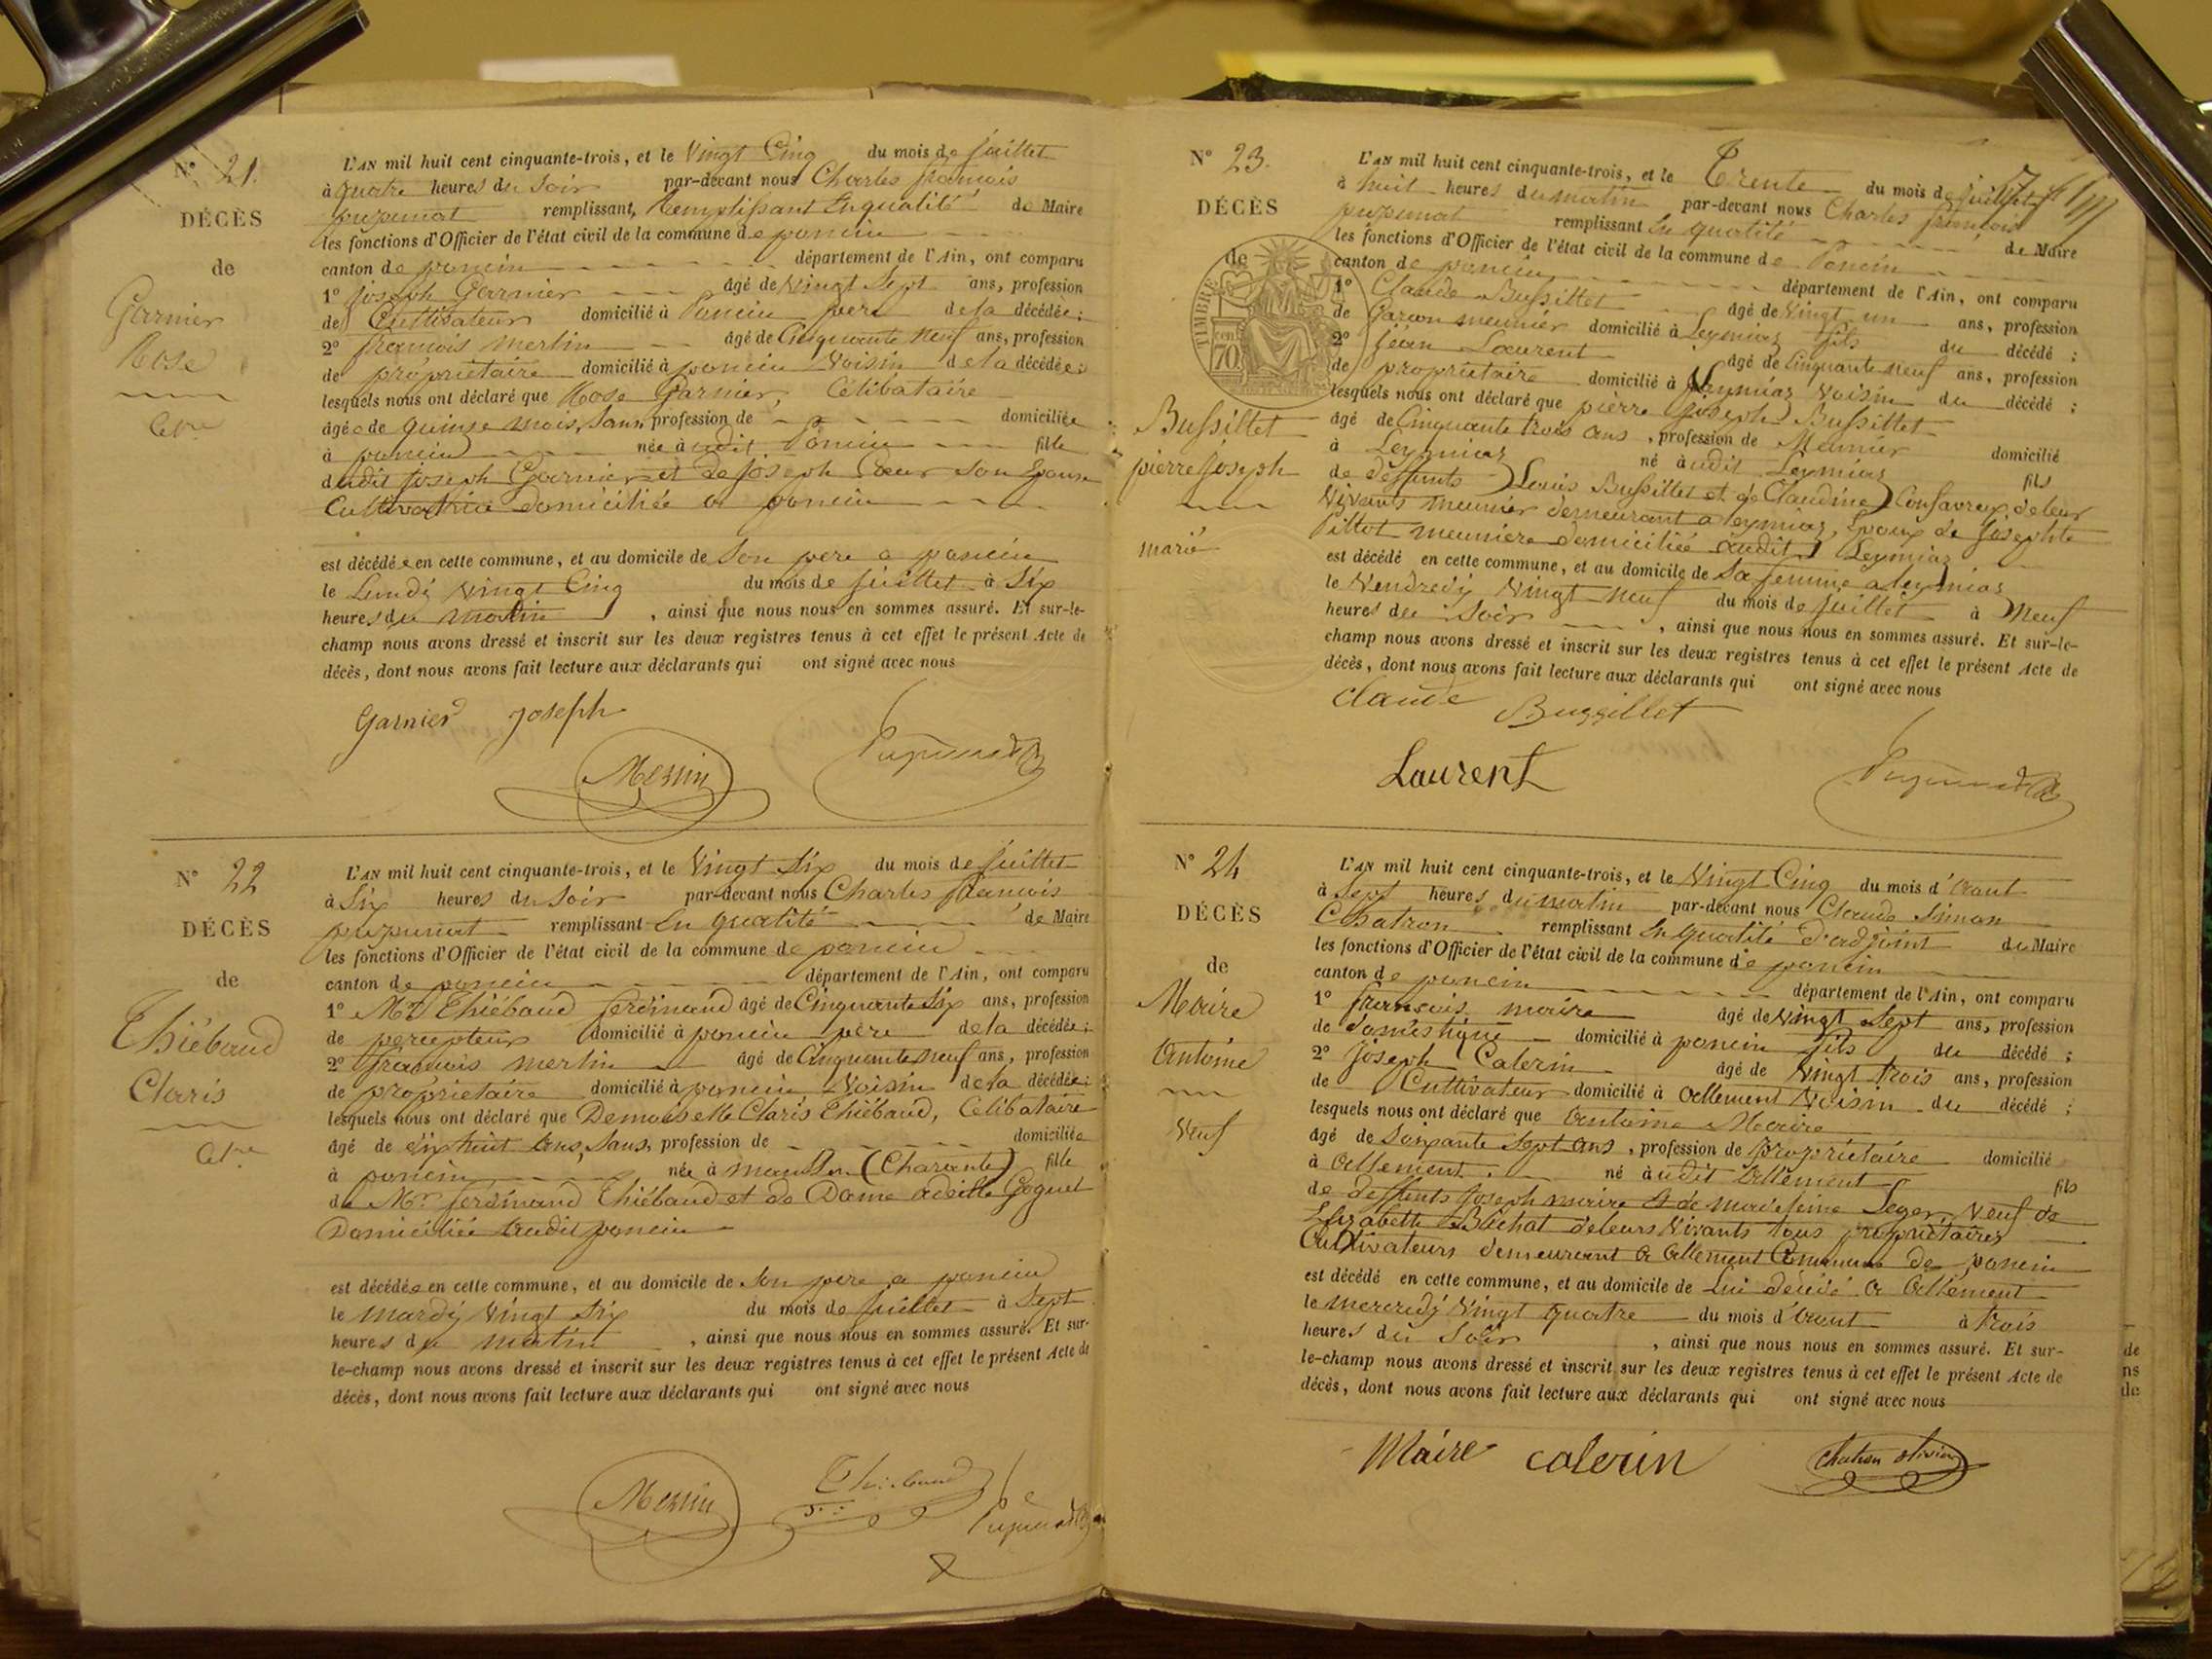 N° 21.
DÉCÈS
de
Garnier
Rose
L'AN mil huit cent cinquante-trois, et le Vingt Cinq du mois de juillet
à quatre heures du soir par-devant nous Charles françois
pupunat remplissant, Remplissant En qualité de Maire
les fonctions d'Officier de l'état civil de la commune de poncin
canton de poncin département de l'Ain, ont comparu
1° joseph Garnier âgé de Vingt Sept ans, profession
de Cultivateur domicilié à Poncin pere de la décédée ;
2° françois merlin âgé de Cinquante neuf ans, profession
de propriétaire domicilié à poncin Voisin de la décédée ;
lesquels nous ont déclaré que Rose Garnier, Célibataire
âgée de quinze mois, Sans profession de domiciliée
à poncin née à udit Poncin fille
dudit joseph Garnier et de joseph Cœur son Epouse
Cultivatrice domiciliée a poncin
est décédée en cette commune, et au domicile de Son pere a poncin
le Lundi Vingt Cinq du mois de juillet à Six
heures du matin , ainsi que nous nous en sommes assuré. Et sur-le-
champ nous avons dressé et inscrit sur les deux registres tenus à cet effet le présent Acte de
décès, dont nous avons fait lecture aux déclarants qui ont signé avec nous
Garnier joseph
N° 22
DÉCÈS
de
Thiébaud
Claris
L'AN mil huit cent cinquante-trois, et le Vingt Six du mois de juillet
à Six heures du Soir par-devant nous Charles françois
pupunat remplissant En qualité de Maire
les fonctions d'Officier de l'état civil de la commune de poncin
canton de poncin département de l'Ain, ont comparu
1° Mr Thiébaud ferdinand âgé de Cinquante Six ans, profession
de percepteur domicilié à poncin père de la décédée ;
2° françois merlin âgé de Cinquante neuf ans, profession
de propriétaire domicilié à poncin Voisin de la décédée ;
lesquels nous ont déclaré que Demoiselle Claris Thiébaud, Célibataire
âgé de dix huit Ans, Sans, profession de domiciliée
à poncin née à (Charante) fille
de Mr ferdinand Thiébaud et de Dame adeille Goguet
Domiciliée audit poncin
est décédée en cette commune, et au domicile de Son pere a poncin
le mardy Vingt Six du mois de juillet à Sept
heures du matin , ainsi que nous nous en sommes assuré. Et sur-
le-champ nous avons dressé et inscrit sur les deux registres tenus à cet effet le présent Acte de
décès, dont nous avons fait lecture aux déclarants qui ont signé avec nous
Thiébaud
N° 23.
DÉCÈS
de
TIMBRE
70
Bussillet
pierre joseph
marié
L'AN mil huit cent cinquante-trois, et le Trente du mois de juillet
à huit heures du matin par-devant nous Charles françois
pupunat remplissant En qualité de Maire
les fonctions d'Officier de l'état civil de la commune de Poncin
canton de poncin département de l'Ain, ont comparu
1° Claude Bussillet âgé de Vingt un ans, profession
de Garçon meunier domicilié à Leymiaz fils du décédé ;
2° jean Laurent âgé de Cinquante neuf ans, profession
de propriétaire domicilié à Leymiaz Voisin du décédé ;
lesquels nous ont déclaré que pierre joseph Bussillet
âgé de Cinquante trois ans , profession de Meunier domicilié
à Leymiaz né à udit Leymiaz fils
de deffunts Louis Bussillet et de Claudine Confavreux de leur
Vivants meunier demeurant a leymiaz, Epoux de josephte
Pittot meuniere domiciliée audit Leymiaz
est décédé en cette commune, et au domicile de Sa femme a leymiaz
le Vendredy Vingt neuf du mois de juillet à Neuf
heures du Soir , ainsi que nous nous en sommes assuré. Et sur-le-
champ nous avons dressé et inscrit sur les deux registres tenus à cet effet le présent Acte de
décès, dont nous avons fait lecture aux déclarants qui ont signé avec nous
Claude Bussillet
Laurent
N° 24
DÉCÈS
de
Maire
Antoine
Veuf
L'AN mil huit cent cinquante-trois, et le Vingt Cinq du mois d'Aout
à Sept heures du matin par-devant nous Claude Simon
Chatron remplissant En qualité d'adjoint du Maire
les fonctions d'Officier de l'état civil de la commune de poncin
canton de poncin département de l'Ain, ont comparu
1° françois maire âgé de Vingt Sept ans, profession
de domestique domicilié à poncin fils du décédé ;
2° Joseph Calerin âgé de Vingt trois ans, profession
de Cultivateur domicilié à Allement Voisin du décédé ;
lesquels nous ont déclaré que Antoine Maire
âgé de Soixante Sept Ans , profession de Propriétaire domicilié
à Allement né à udit Allement fils
de deffunts Joseph maire & de madeleine Leger Veuf de
Elizabette Bichat de leurs Vivants tous propriétaires
Cultivateurs demeurant a Allement Commune de poncin
est décédé en cette commune, et au domicile de Lui décédé a Allement
le mercredy Vingt quatre du mois d'Aout à trois
heures du Soir , ainsi que nous nous en sommes assuré. Et sur-
le-champ nous avons dressé et inscrit sur les deux registres tenus à cet effet le présent Acte de
décès, dont nous avons fait lecture aux déclarants qui ont signé avec nous
Maire Calerin
de
ns
de